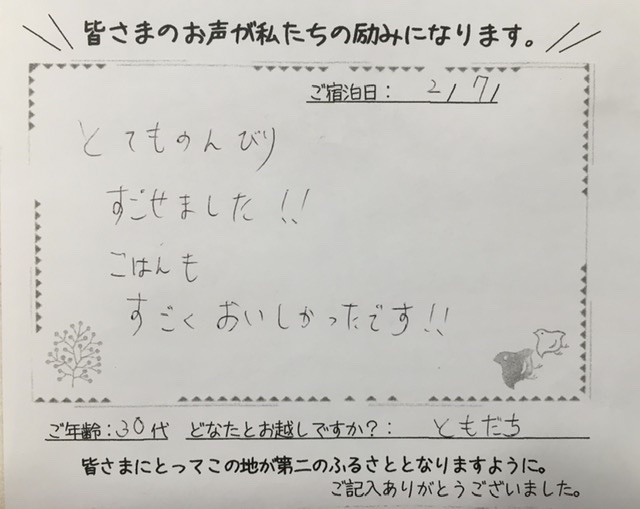 皆さまのお声が私たちの励みになります。
ご宿泊日： 2/7/
とてものんびり
すごせました!!
ごはんも
すごくおいしかったです!!
ご年齢：30代 どなたとお越しですか？： ともだち
皆さまにとってこの地が第二のふるさととなりますように。
ご記入ありがとうございました。